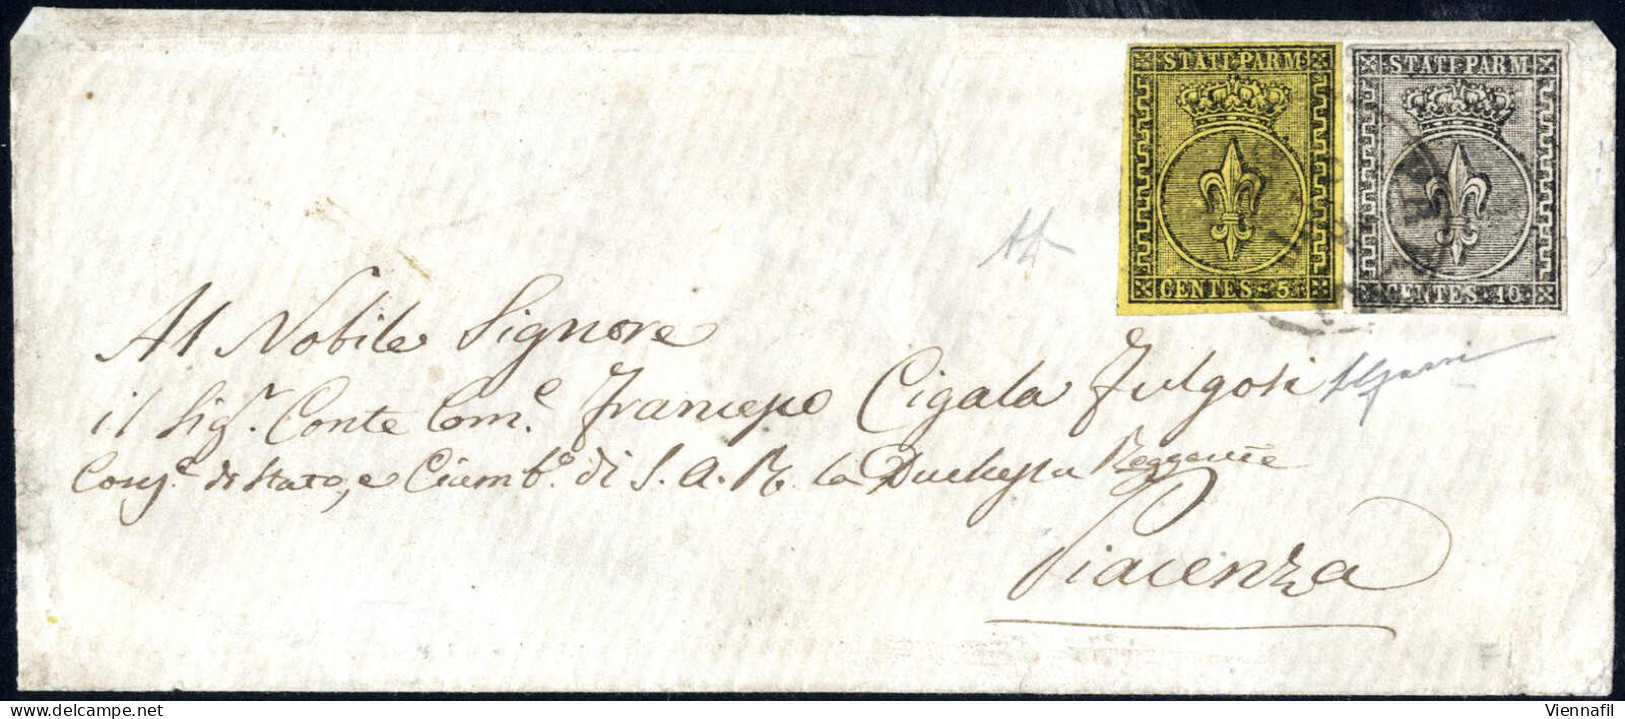 STATI PARM
CENTES 5
STATI PARM
CENTES 10
Al Nobile Signore
il Sigr. Conte Come. Francesco Cigala Fulgosi
Consr. di Stato, e Ciambo. di S. A. R. la Duchessa Reggente
Piacenza
delcampe.net
Viennafil